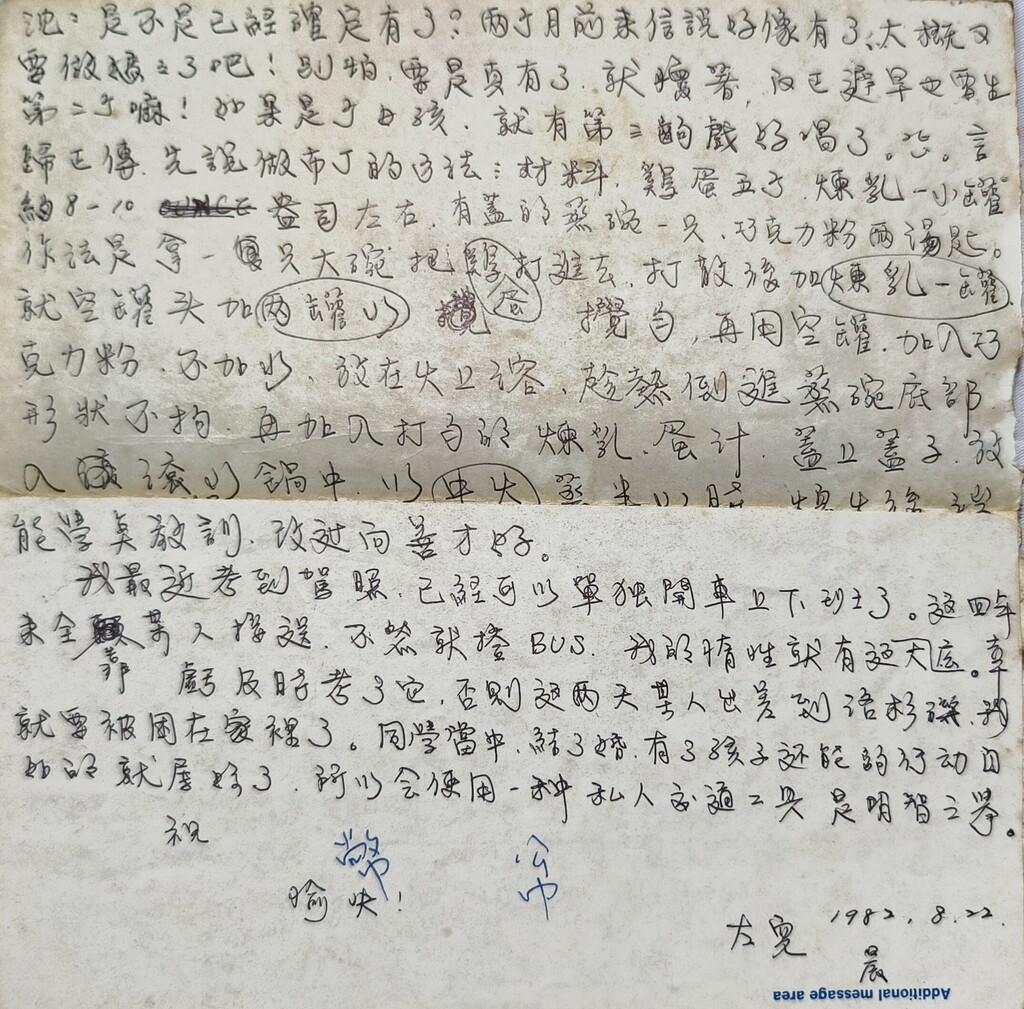 沈：是不是已經確定有了？兩个月前来信説好像有了、大概又
要做媽々了吧！别怕，要是真有了，就懷著，反正遲早也要生
第二个嘛！如果是个女孩，就有第三齣戲好唱了。言
歸正傳，先說做布丁的方法：材料，雞蛋五个，煉乳一小罐
約8-10 盎司左右，有蓋的蒸碗一只，巧克力粉兩湯匙。
作法是拿一只大碗把雞蛋打進去，打散後加煉乳一罐
就空罐头加两罐水 攪匀，再用空罐，加入巧
克力粉，不加水，放在火上溶，趁熱倒進蒸碗底部，
形狀不拘，再加入打匀的煉乳、蛋汁，蓋上蓋子，放
入滾水鍋中，以中火蒸半小時，
能學與教訓，改过向善才好。
我最近考到駕照，已經可以單独開車上下班了。这四年
来全靠某人接送，不然就搭BUS，我的惰性就有这麽大。幸
虧及時考了它，否則这两天某人出差到洛杉磯，我
就要被困在家裡了。同學當中，結了婚，有了孩子还能够行动自
如的就屬妳了，所以会使用一种私人交通工具是明智之舉。
祝
愉快！
幣 帋
1982，8.22.
晨
Additional message area